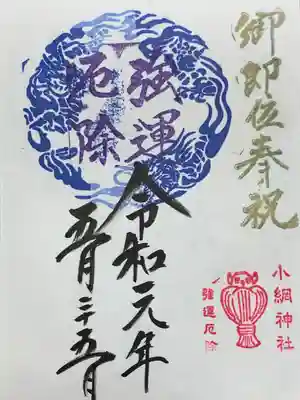 御即位奉祝
強運
厄除
令和元年
五月二十五日
小網神社
強運厄除